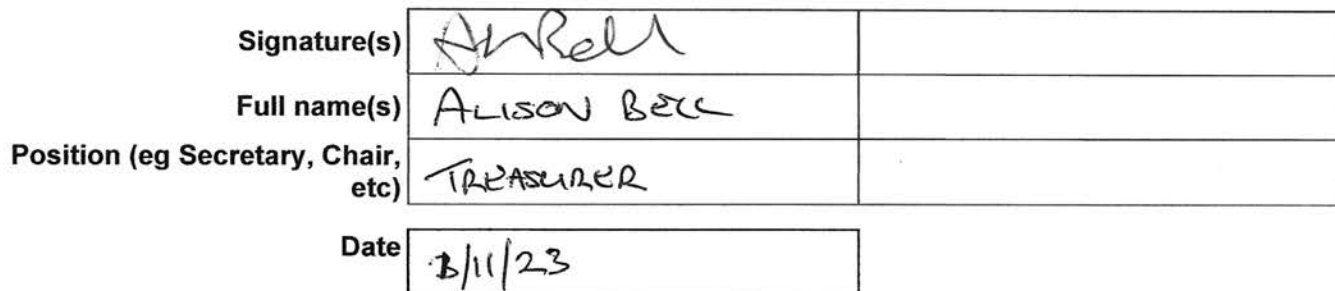 Signature(s)
Full name(s) ALISON BELL
Position (eg Secretary, Chair,
etc) TREASURER
Date